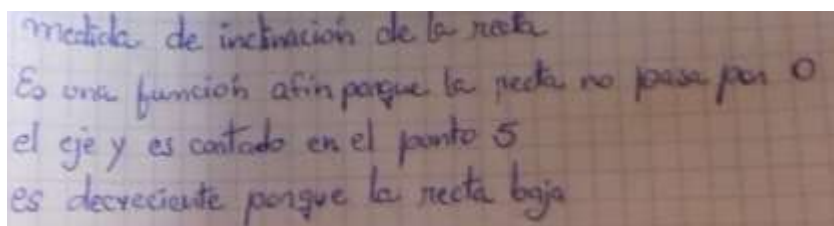 medida de inclinación de la recta
Es una función afín porque la recta no pasa por 0
el eje y es cortado en el punto 5
es decreciente porque la recta baja